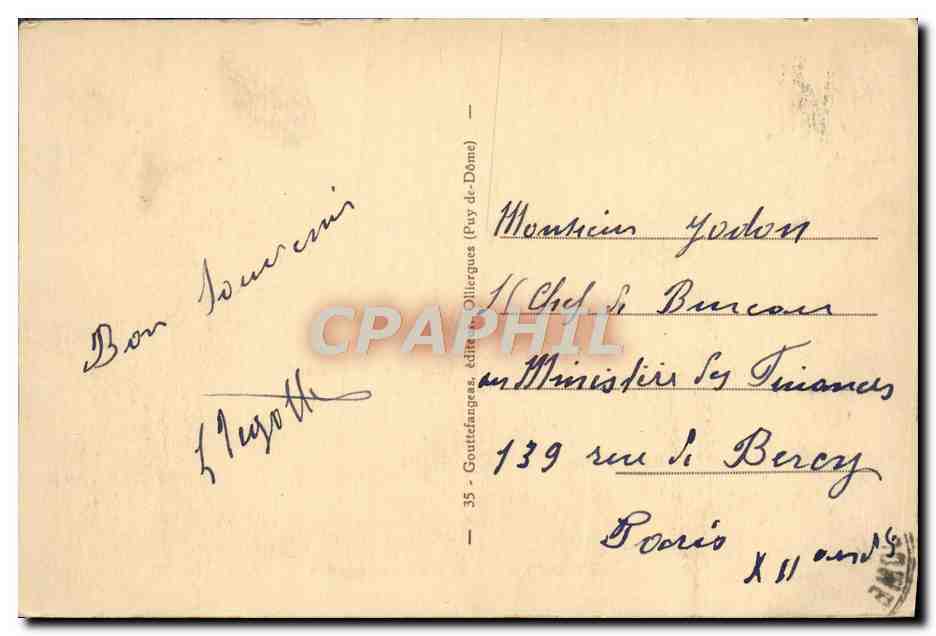 Bon Souvenir
35 - Gouttefangeas, éditeur, Olliergues (Puy de-Dôme)
CPAPHIL
Monsieur Jodon
S/ Chef de Bureau
au Ministère des Finances
139 rue de Bercy
Paris
XII